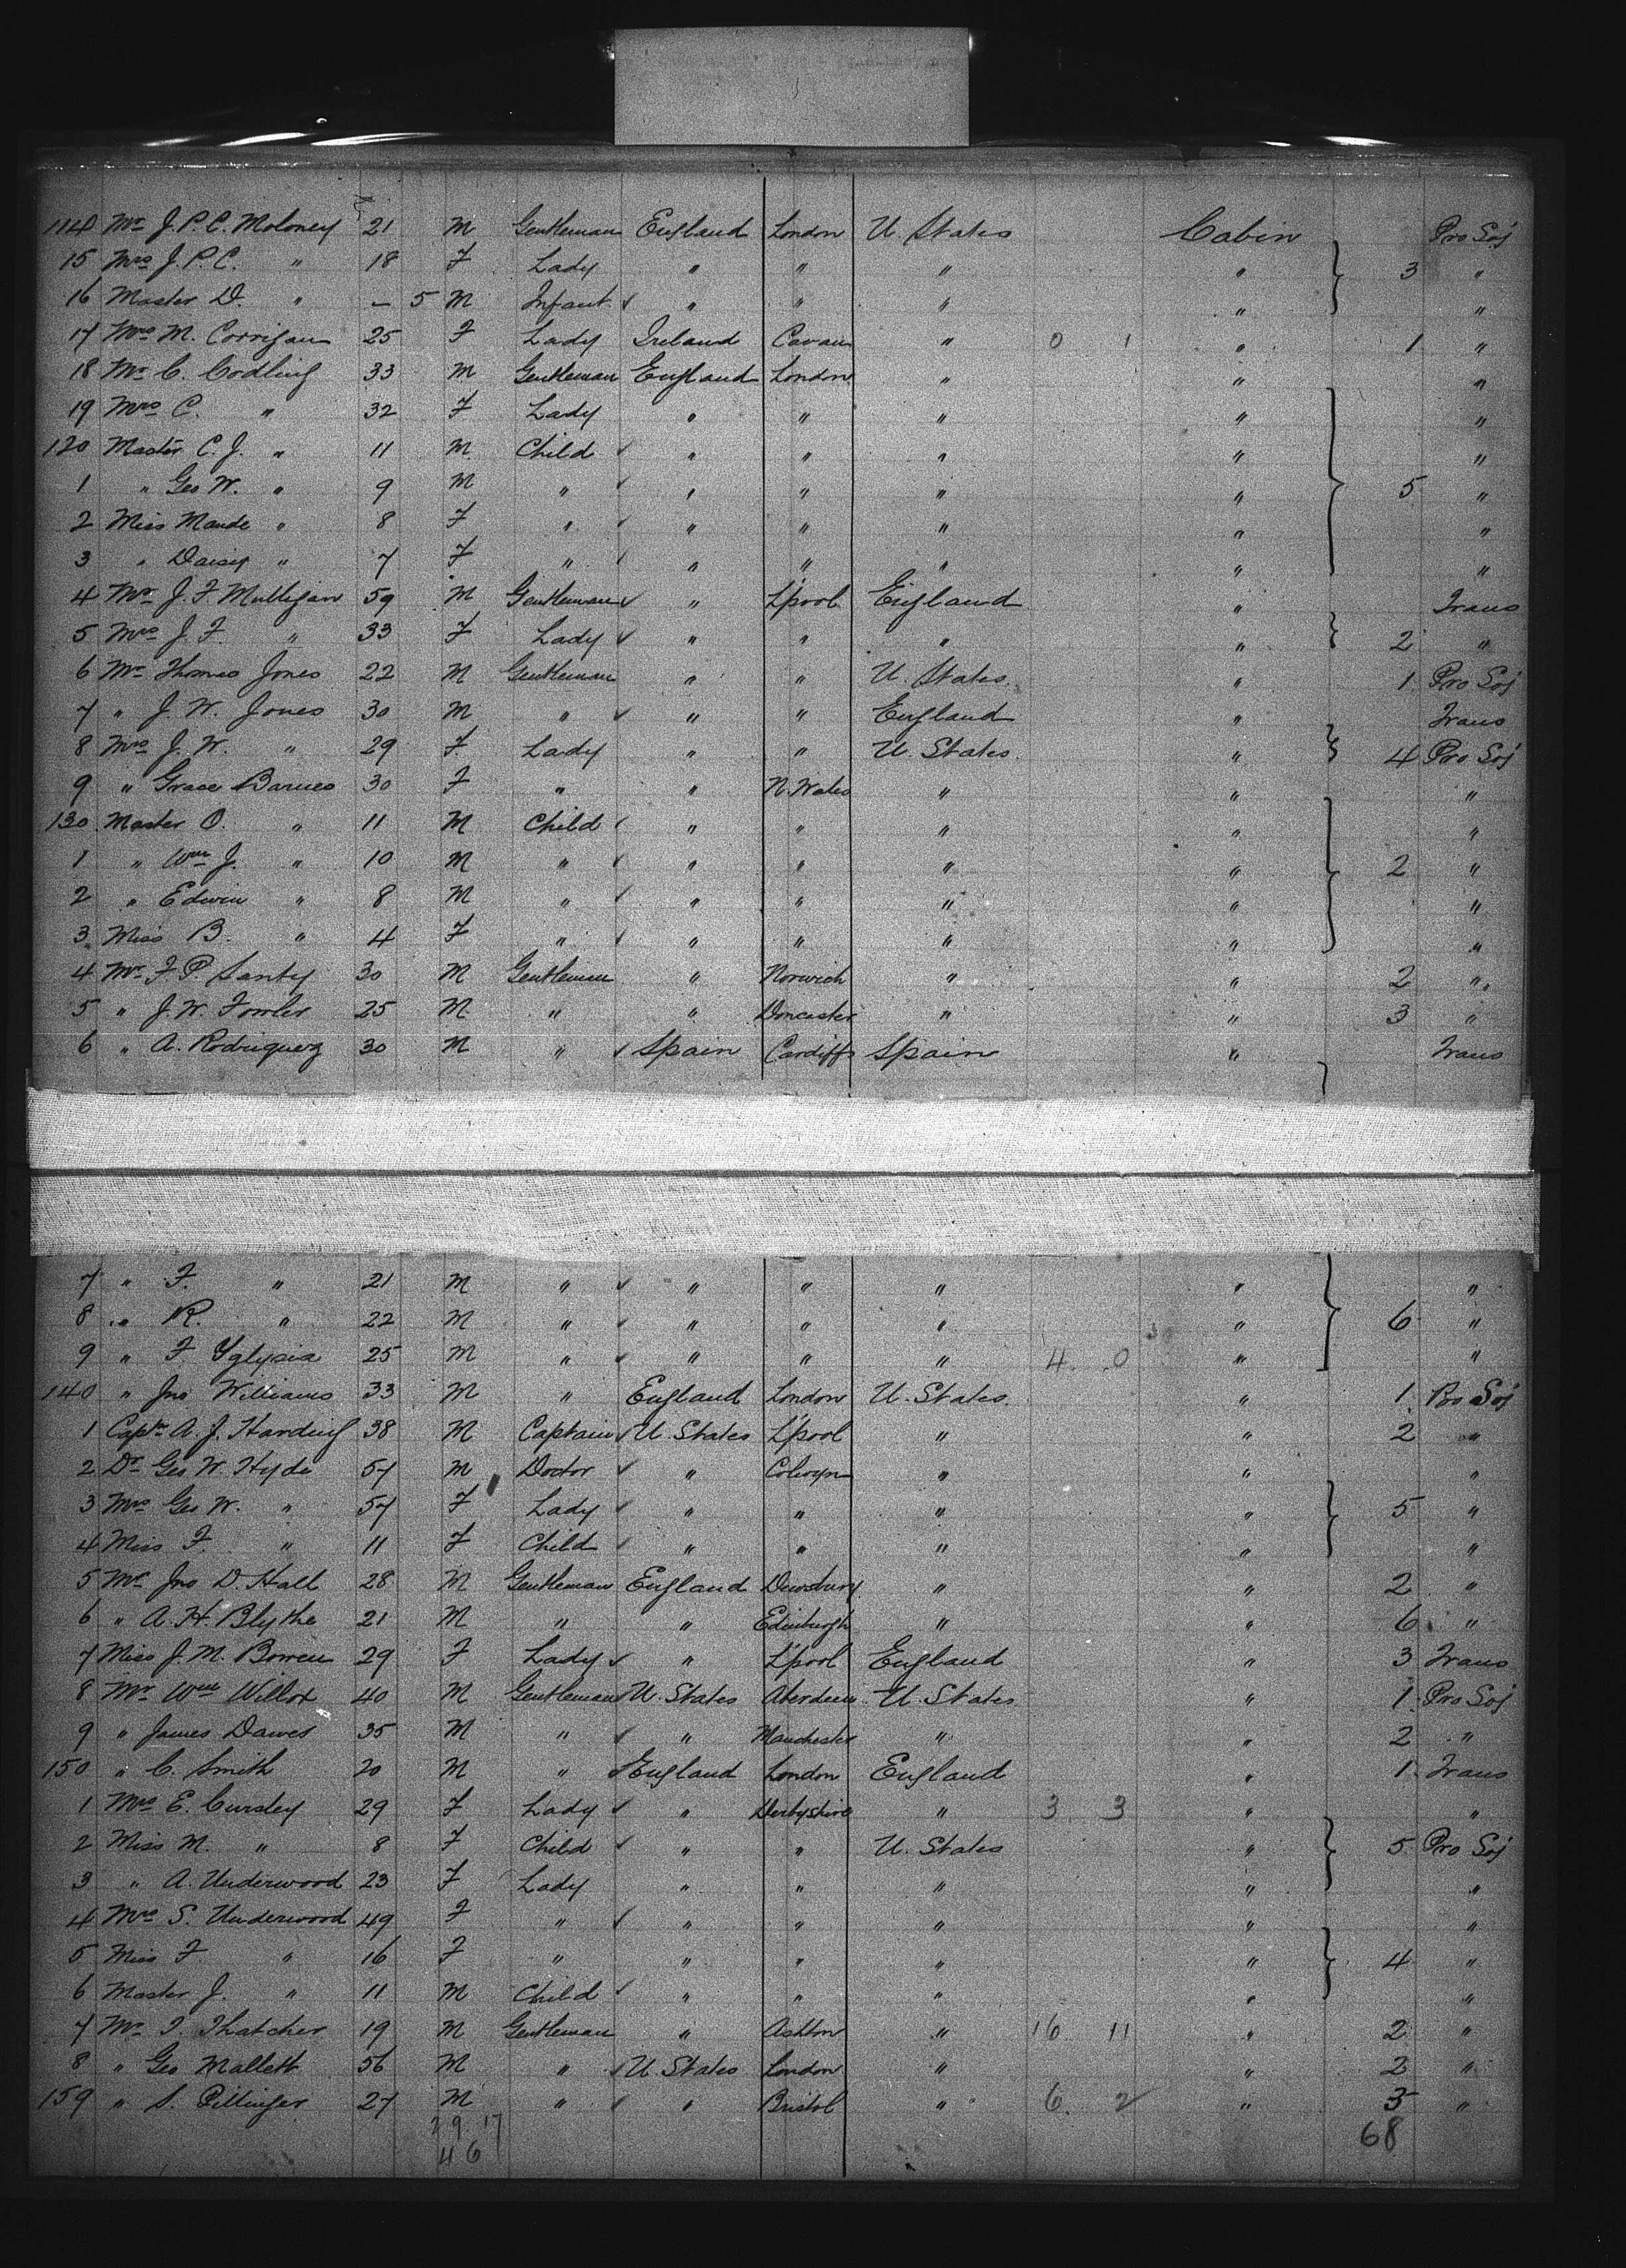 114 Mr J. P. C. Moloney 21 M Gentleman England London U. States Cabin Pro Soj
15 Mrs J. P. C. " 18 F Lady " " " " 3 "
16 Master D. " – 5 M Infant " " " " "
17 Mrs M. Corrigan 25 F Lady Ireland Cavan " 0 1 " 1 "
18 Mr C. Codling 33 M Gentleman England London " " "
19 Mrs C. " 32 F Lady " " " " "
120 Master C. J. " 11 M Child " " " " "
1 " Geo W. " 9 M " " " " " 5 "
2 Miss Maude " 8 F " " " " " "
3 " Daisy " 7 F " " " " " "
4 Mr J. F. Mulligan 59 M Gentleman " L'pool England " Trans
5 Mrs J. F. " 33 F Lady " " " " 2 "
6 Mr Thomas Jones 22 M Gentleman " " U. States " 1 Pro Soj
7 " J. W. Jones 30 M " " " England " Trans
8 Mrs J. W. " 29 F Lady " " U. States " 4 Pro Soj
9 " Grace Barnes 30 F " " N. Wales " " "
130 Master O. " 11 M Child " " " " "
1 " Wm J. " 10 M " " " " " 2 "
2 " Edwin " 8 M " " " " " "
3 Miss B. " 4 F " " " " " "
4 Mr F. P. Santy 30 M Gentleman " Norwich " " 2 "
5 " J. W. Fowler 25 M " " Doncaster " " 3 "
6 " A. Rodriguez 30 M " Spain Cardiff Spain " Trans
7 " F. " 21 M " " " " " "
8 " R. " 22 M " " " " " 6 "
9 " F. Yglycia 25 M " " " " 4 0 " "
140 " Jno Williams 33 M " England London U. States " 1 Pro Soj
1 Captn A. J. Harding 38 M Captain U. States L'pool " " 2 "
2 Dr Geo W. Hyde 57 M Doctor " Colwyn " " "
3 Mrs Geo W. " 57 F Lady " " " " 5 "
4 Miss F. " 11 F Child " " " " "
5 Mr Jno D. Hall 28 M Gentleman England Dewsbury " " 2 "
6 " A. H. Blythe 21 M " " Edinburgh " " 6 "
7 Miss J. M. Bowen 29 F Lady " L'pool England " 3 Trans
8 Mr Wm Willox 40 M Gentleman U. States Aberdeen U. States " 1 Pro Soj
9 " James Dawes 35 M " " Manchester " " 2 "
150 " C. Smith 20 M " England London England " 1 Trans
1 Mrs E. Cursley 29 F Lady " Derbyshire " 3 3 " "
2 Miss M. " 8 F Child " " U. States " 5 Pro Soj
3 " A. Underwood 23 F Lady " " " " "
4 Mrs S. Underwood 49 F " " " " " "
5 Miss F. " 16 F " " " " " 4 "
6 Master J. " 11 M Child " " " " "
7 Mr T. Thatcher 19 M Gentleman " Ashton " 16 11 " 2 "
8 " Geo Mallett 56 M " U. States London " " 2 "
159 " S. Pillinger 27 M " " Bristol " 6 2 " 3 "
29 17 68
46